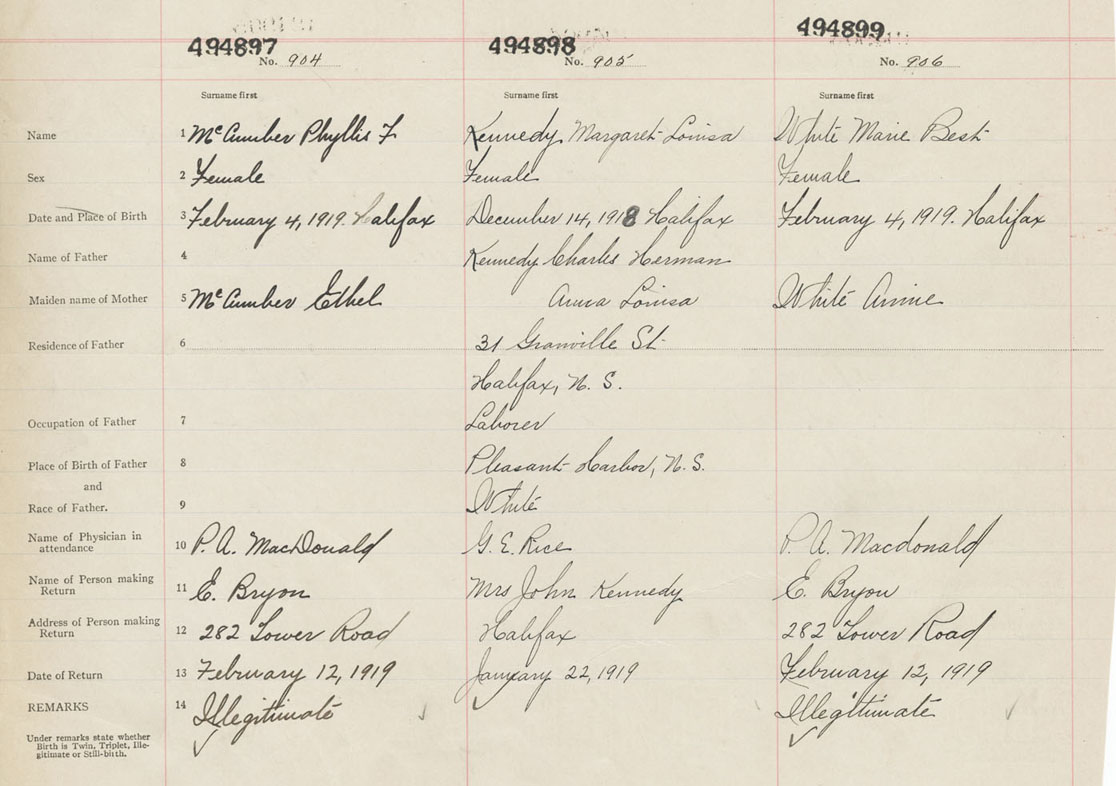 494897 494898 494899
No. 904 No. 905 No. 906
Surname first Surname first Surname first
Name 1 McCumber Phyllis F Kennedy Margaret Louisa White Marie Best
Sex 2 Female Female Female
Date and Place of Birth 3 February 4, 1919. Halifax December 14, 1918 Halifax February 4, 1919. Halifax
Name of Father 4 Kennedy Charles Herman
Maiden name of Mother 5 McCumber Ethel Anna Louisa White Annie
Residence of Father 6 31 Granville St.
Halifax, N. S.
Occupation of Father 7 Laborer
Place of Birth of Father 8 Pleasant Harbor, N. S.
and
Race of Father. 9 White
Name of Physician in
attendance 10 P. A. MacDonald G. E. Rice P. A. Macdonald
Name of Person making
Return 11 E. Bryon Mrs John Kennedy E. Bryon
Address of Person making
Return 12 282 Tower Road Halifax 282 Tower Road
Date of Return 13 February 12, 1919 January 22, 1919 February 12, 1919
REMARKS 14 Illegitimate Illegitimate
Under remarks state whether
Birth is Twin, Triplet, Ille-
gitimate or Still-birth.